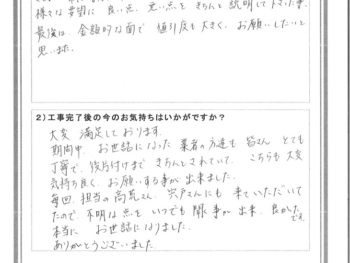 様々な要望に 良い点、悪い点を きちんと 説明して下さった事、
最後は 金額的な面で 値引度も大きく、お願いしたいと
思いました。
2）工事完了後の今のお気持ちはいかがですか？
大変 満足しております。
期間中、お世話になった 業者の方達も 皆さん とても
丁寧で、後片付けまで きちんとされていて、こちらも 大変
気持ち良く、お願いする事が 出来ました。
毎回、担当の 高荒さん、宍戸さんにも 来ていただいて
たので、不明な点を いつでも 聞く事が 出来、良かったです。
本当に お世話になりました。
ありがとうございました。